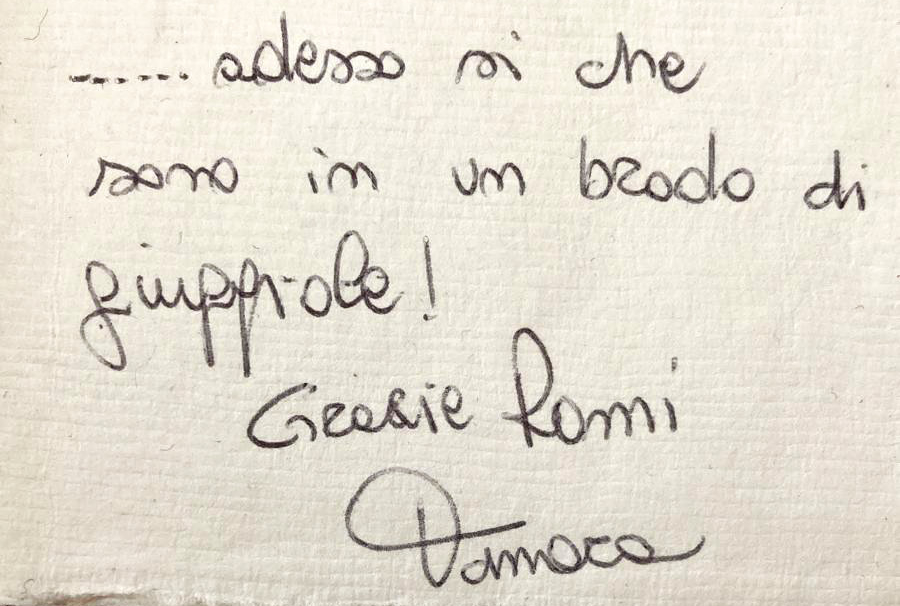 ....... adesso si che
sono in un brodo di
giuggiole!
Grazie Romi
Tamara